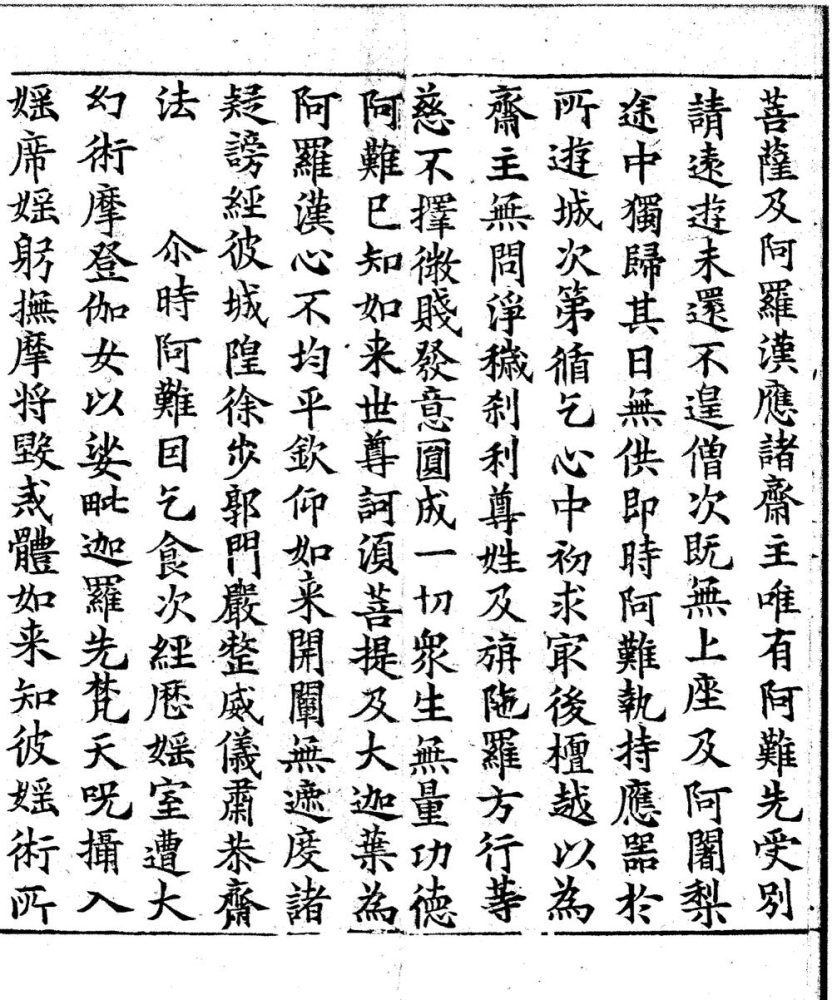 菩薩及阿羅漢應諸齋主唯有阿難先受別
請遠遊未還不遑僧次既無上座及阿闍梨
途中獨歸其日無供即時阿難執持應器於
所遊城次第循乞心中初求㝡後檀越以為
齋主無問淨穢刹利尊姓及旃陁羅方行䓁
慈不擇微賤發意圓成一切衆生無量功德
阿難已知如来世尊訶須菩提及大迦葉為
阿羅漢心不均平欽仰如来開闡無遮度諸
疑謗經彼城隍徐步郭門嚴整威儀肅恭齋
法　尒時阿難因乞食次經歷婬室遭大
幻術摩登伽女以娑毗迦羅先梵天呪攝入
婬席婬躬撫摩将毀戒體如来知彼婬術所